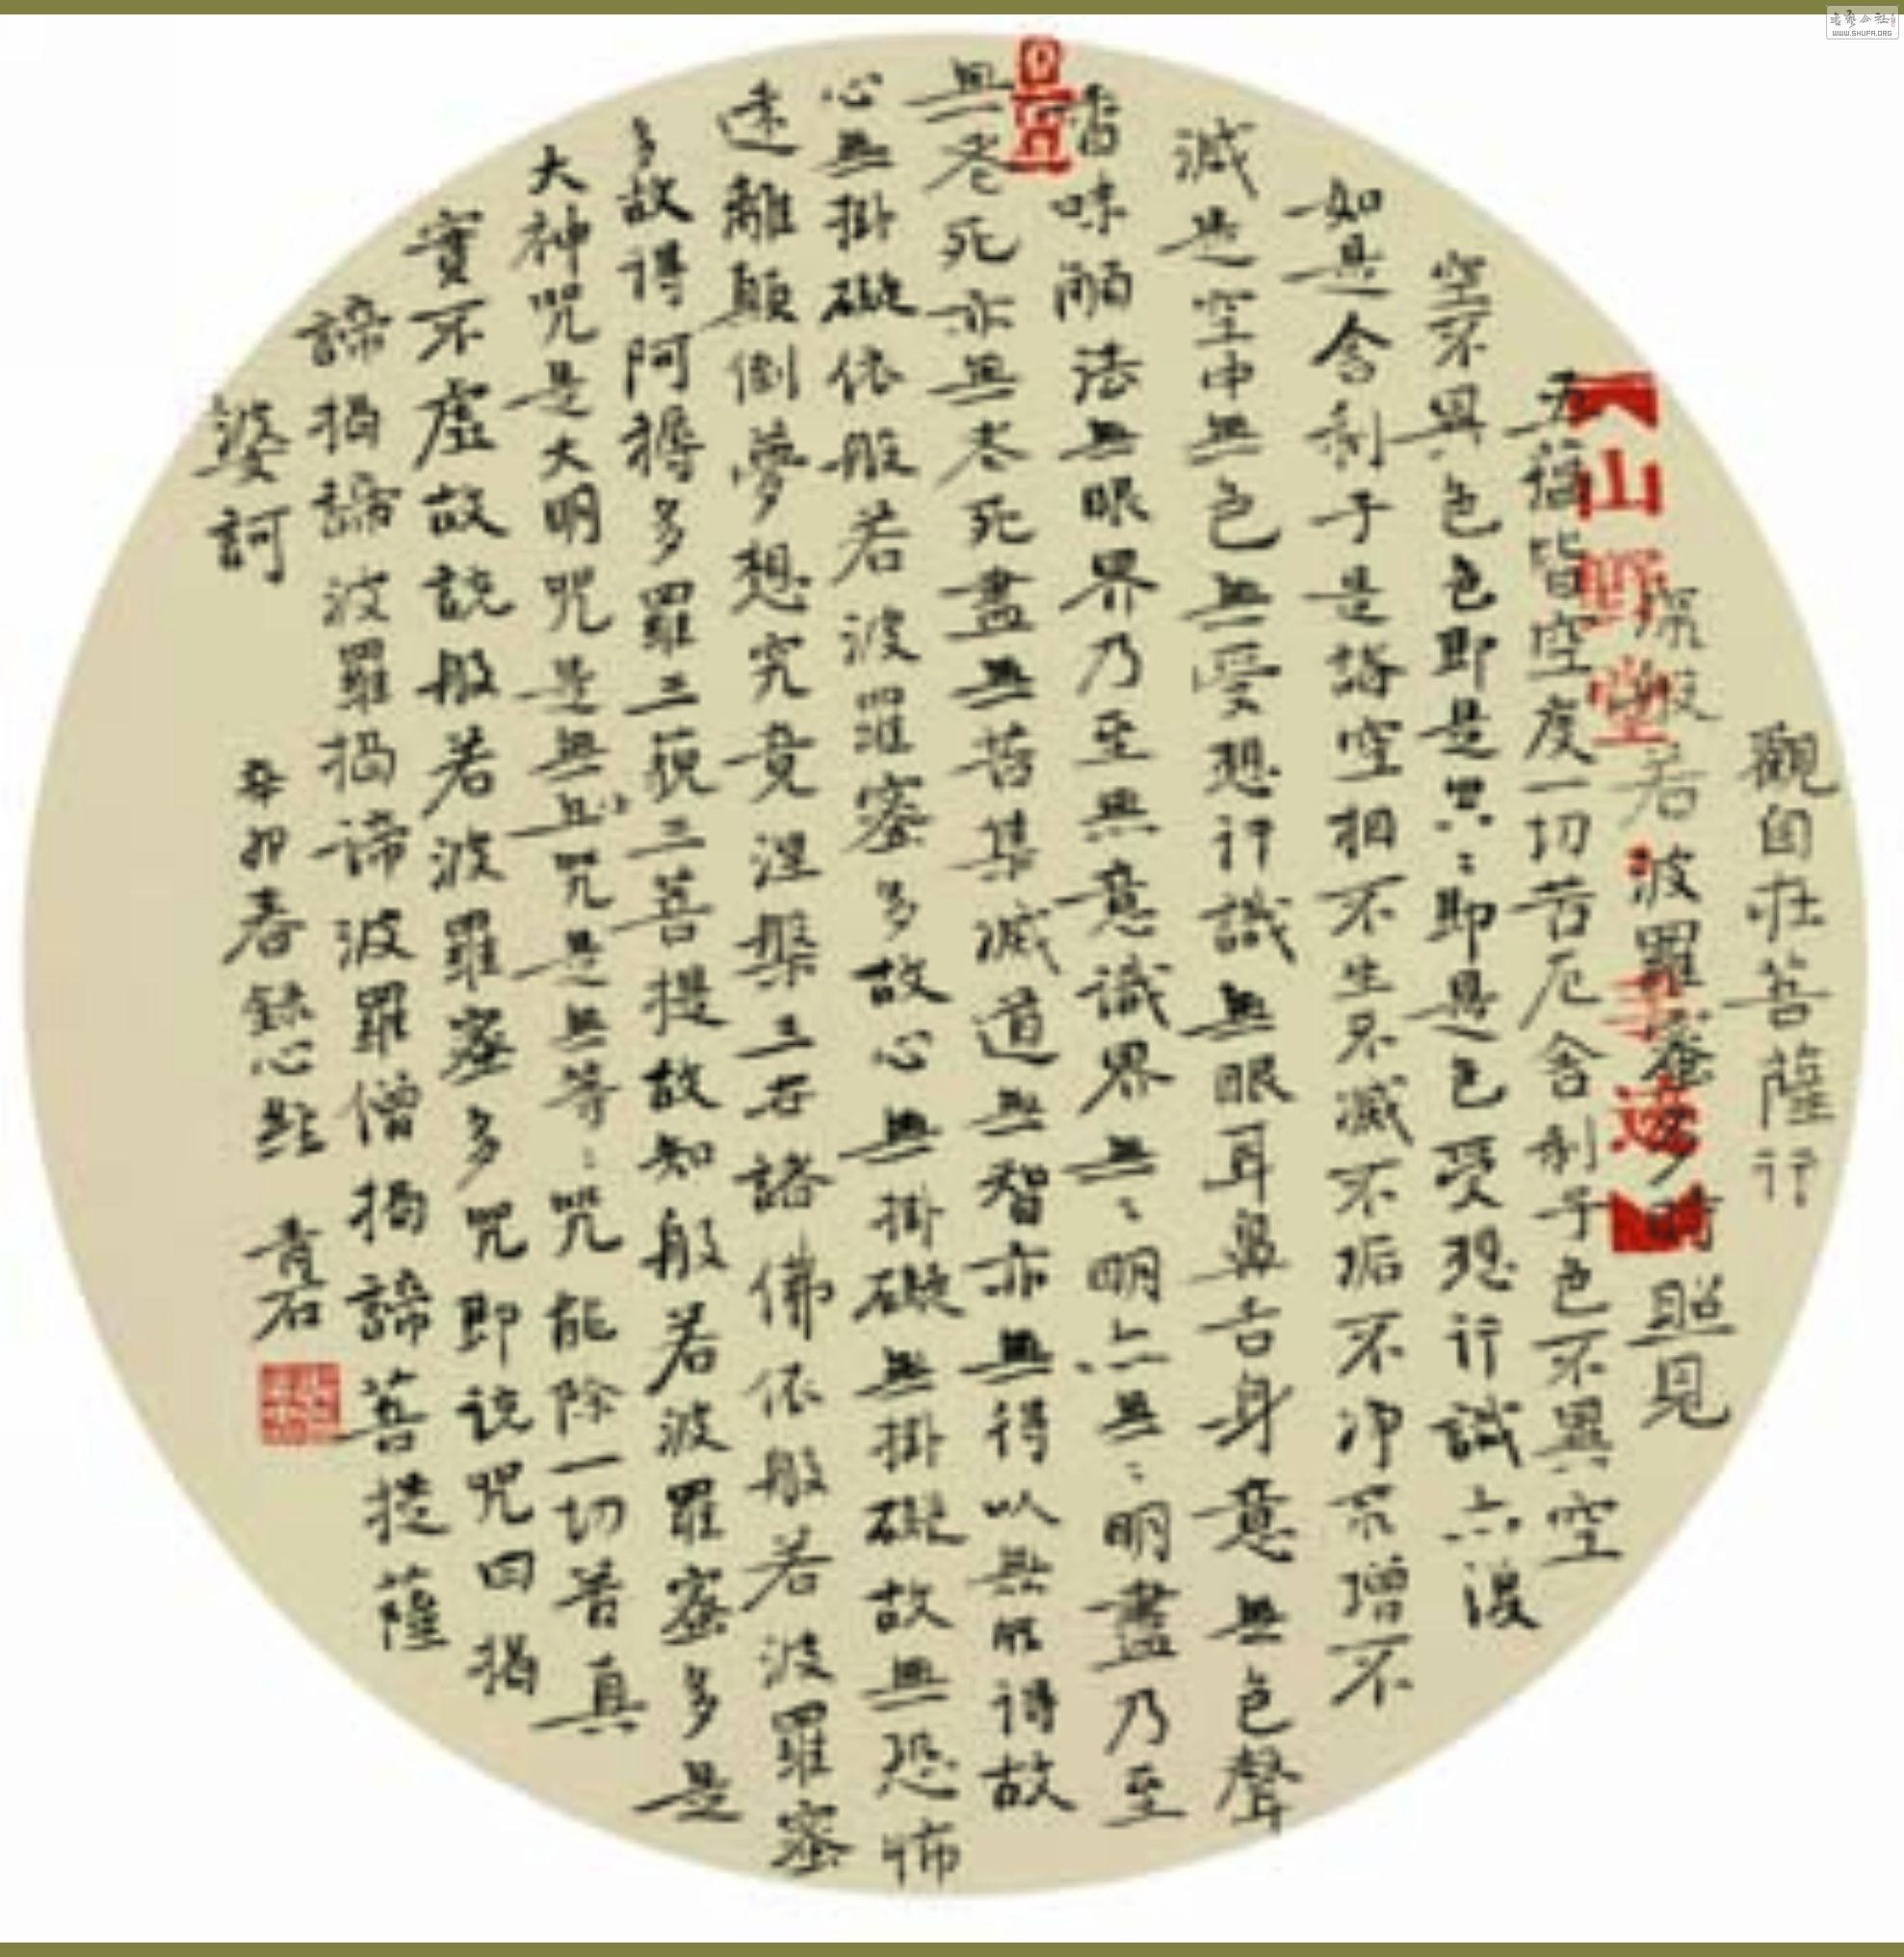 觀自在菩薩行
深般若波羅蜜多時照見
五蘊皆空度一切苦厄舍利子色不異空
空不異色色即是空:即是色受想行識亦復
如是舍利子是諸空相不生不滅不垢不淨不增不
減是空中無色無受想行識無眼耳鼻舌身意無色聲
香味觸法無眼界乃至無意識界無:明亦無:明盡乃至
無老死亦無老死盡無苦集滅道無智亦無得以無所得故
心無掛礙依般若波羅蜜多故心無掛礙無掛礙故無恐怖
遠離顛倒夢想究竟涅槃三世諸佛依般若波羅蜜
多故得阿耨多羅三藐三菩提故知般若波羅蜜多是
大神咒是大明咒是無上咒是無等:咒能除一切苦真
實不虛故說般若波羅蜜多咒即說咒曰揭
諦揭諦波羅揭諦波羅僧揭諦菩提薩
婆訶
辛卯春錄心經 青石
【山野堂·手迹】
書法公社
WWW.SHUFA.ORG